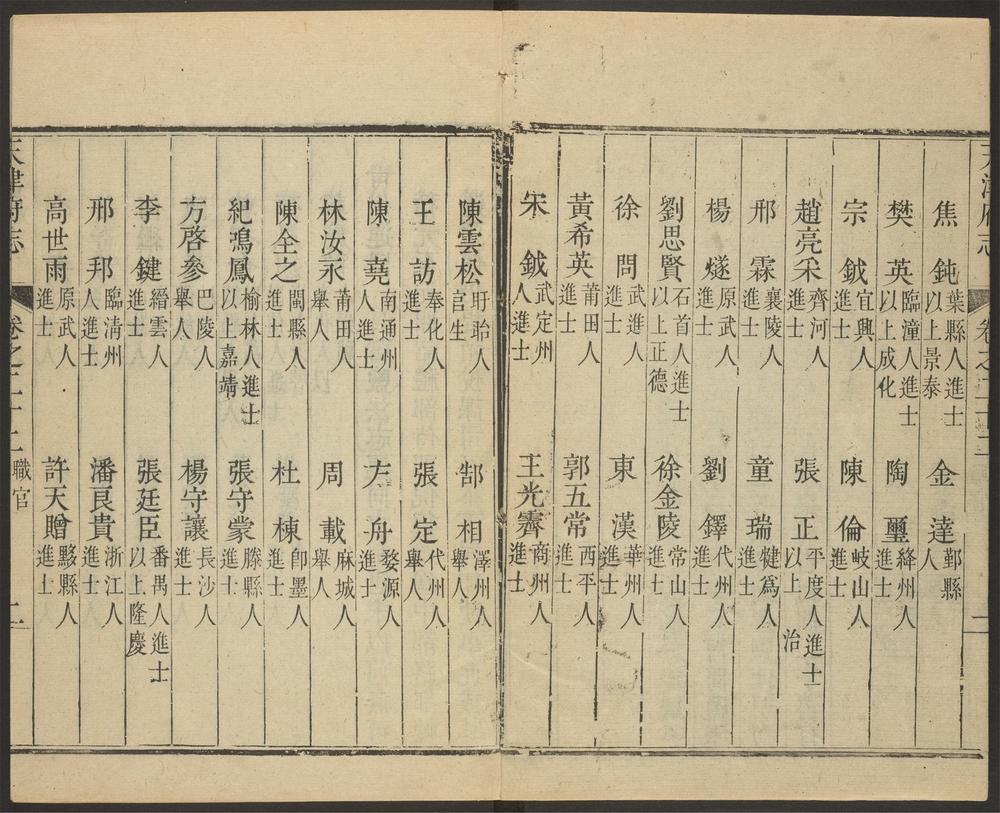 天津府志 卷之二十二 二
焦鈍 葉縣人進士以上景泰 金達 鄞縣人
樊英 臨潼人進士以上成化 陶璽 絳州人進士
宗鉞 宜興人進士 陳倫 岐山人進士
趙亮采 齊河人進士 張正 平度人進士以上 治
邢霖 襄陵人進士 童瑞 犍爲人進士
楊燧 原武人進士 劉鐸 代州人進士
劉思賢 石首人進士以上正德 徐金陵 常山人進士
徐問 武進人進士 東漢 華州人進士
黃希英 莆田人進士 郭五常 西平人進士
宋鉞 武定州人進士 王光霽 商州人進士
陳雲松 盱眙人官生 郜相 澤州人舉人
王訪 奉化人進士 張定 代州人舉人
陳堯 南通州人進士 方舟 婺源人進士
林汝永 莆田人舉人 周載 麻城人舉人
陳全之 閩縣人進士 杜棟 卽墨人進士
紀鴻鳳 榆林人進士以上嘉靖 張守蒙 滕縣人進士
方啓參 巴陵人舉人 楊守讓 長沙人進士
李鍵 縉雲人進士 張廷臣 番禺人進士以上隆慶
邢邦 臨清州人進士 潘良貴 浙江人進士
高世雨 原武人進士 許天贈 黟縣人進士
天津府志 卷之二十二 職官 二